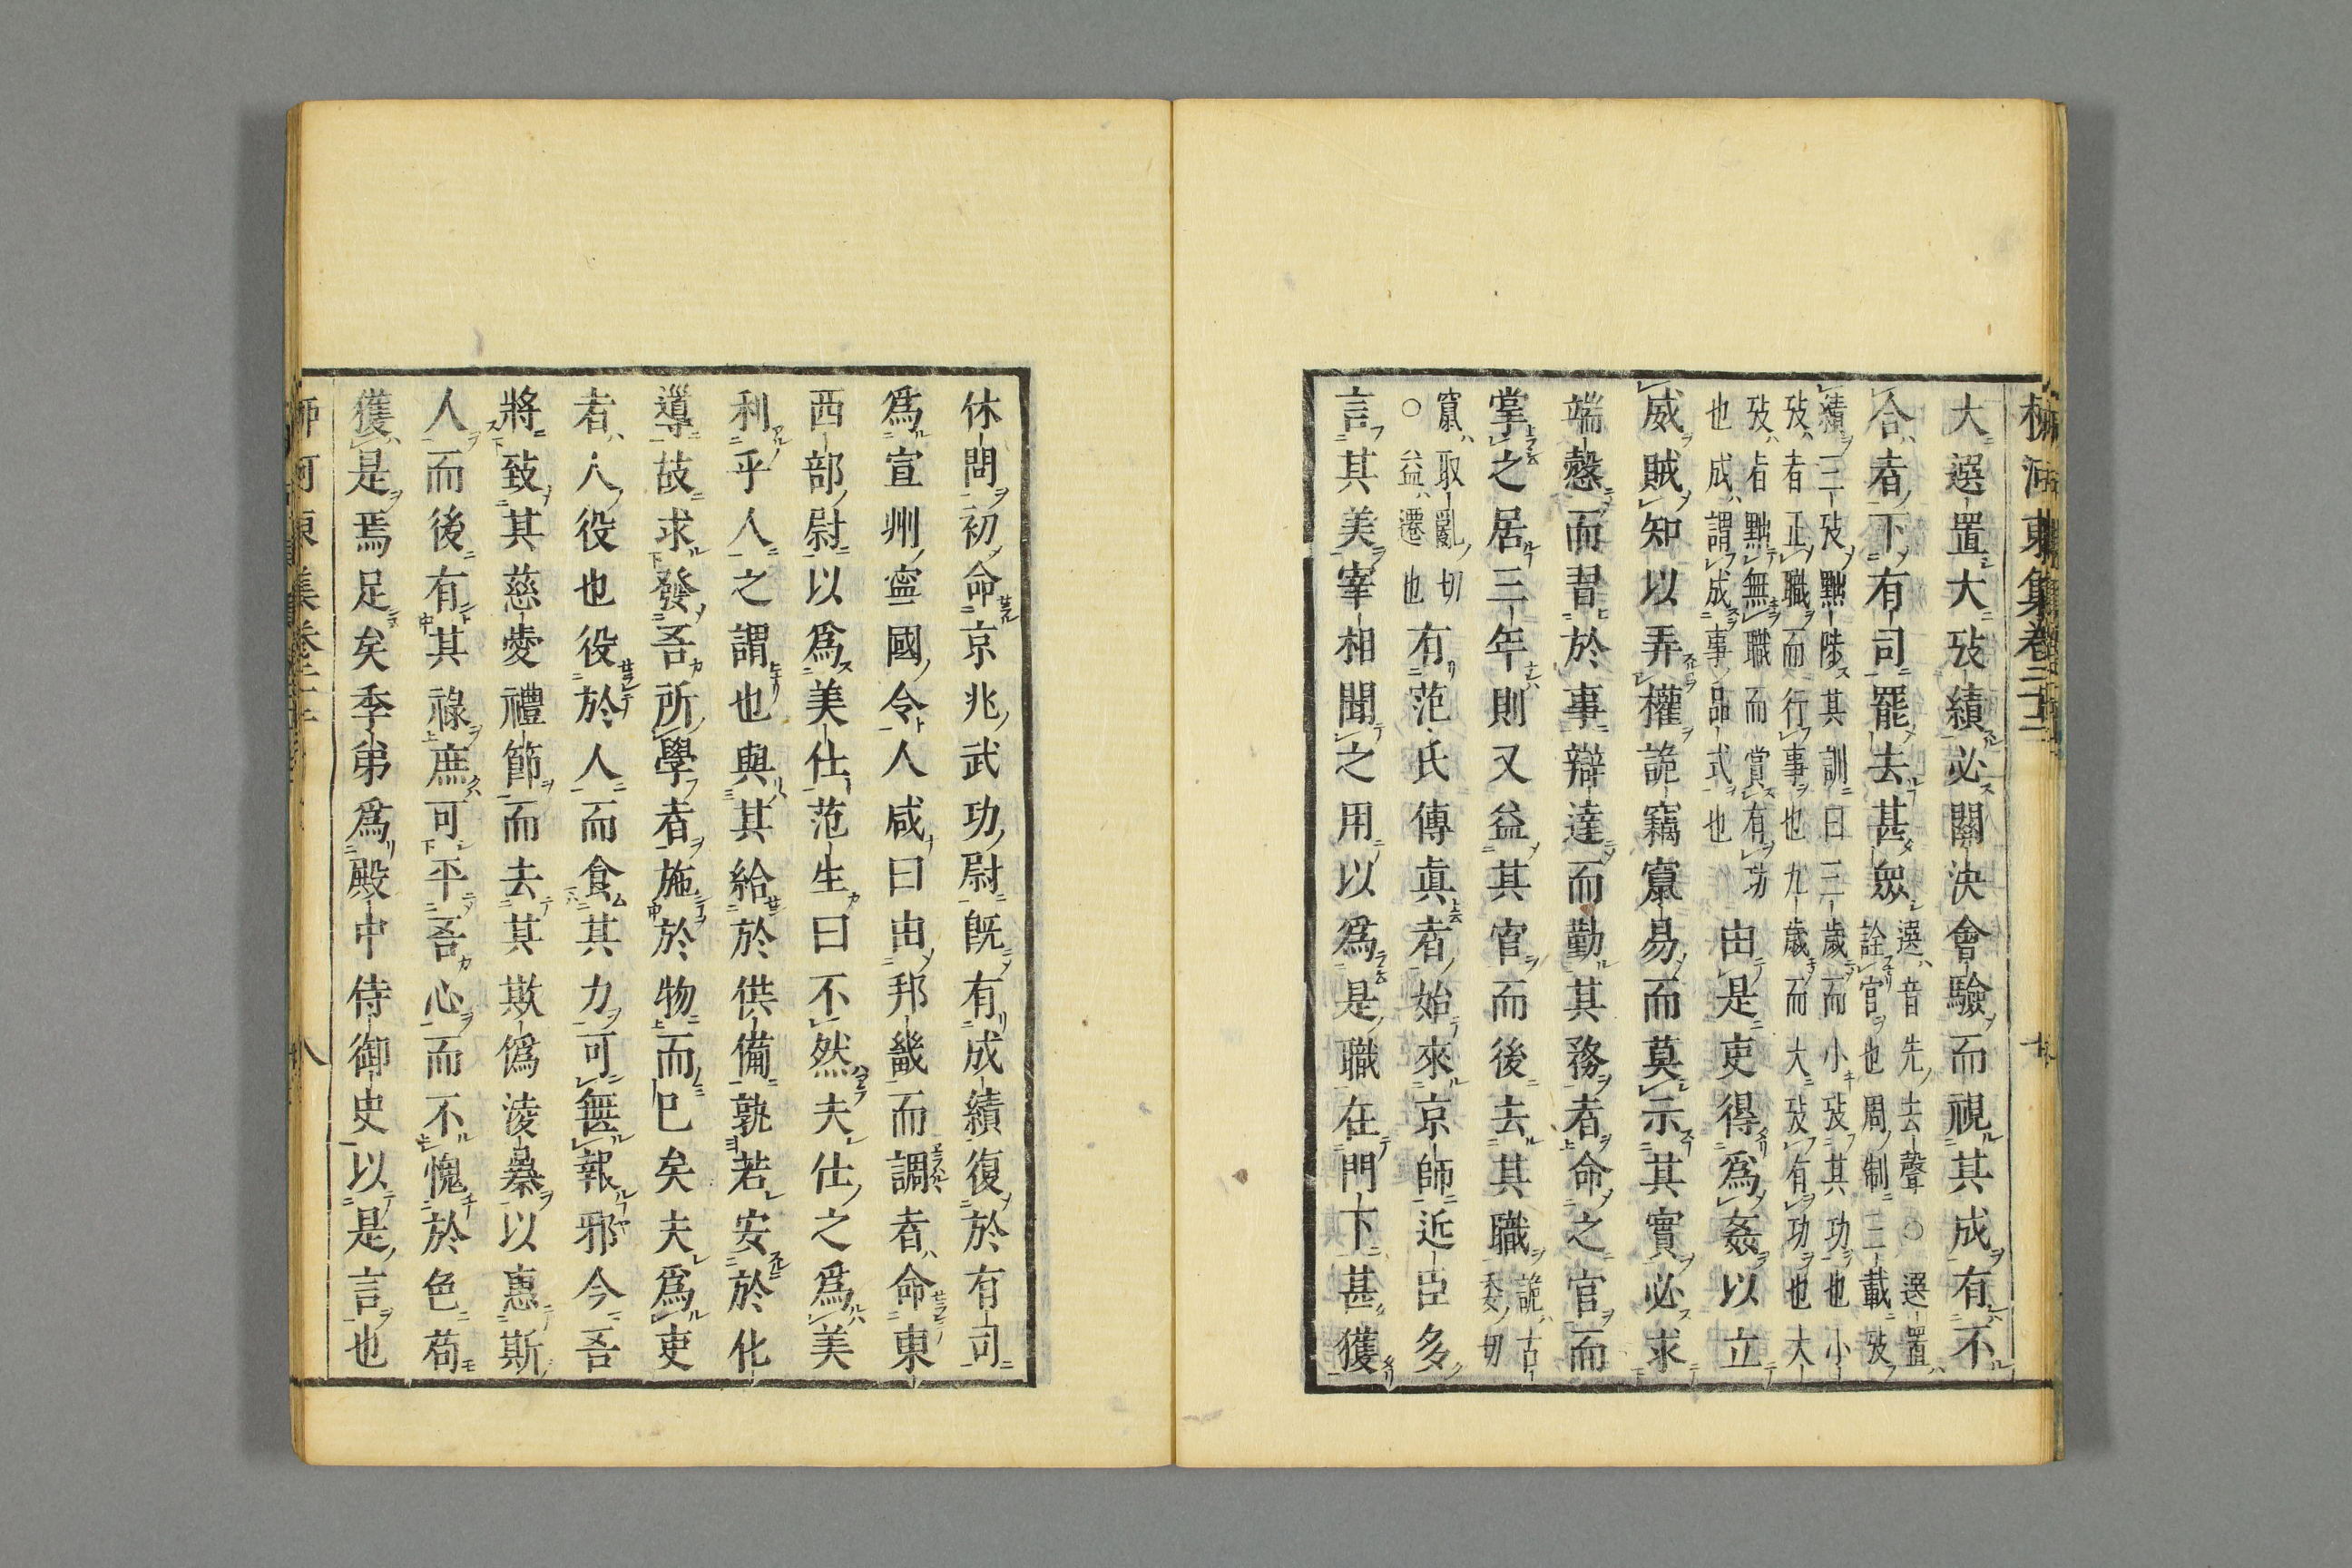 柳河東集卷二十二
大選置大攷績必關決會驗而視其成有不
合者下有司罷去甚眾
選音先去聲○選置
詮官也周制三載攷
績三攷黜陟其訓曰三歲而小攷其功也小
攷者正職而行事也九歲而大攷有功也大
攷者黜無職而賞有功
也成謂成事品式也
由是吏得爲姦以立
威賊知以弄權詭竊竄易而莫示其實必求
端愨而習於事辯達而勤其務者命之官而
掌之居三年則又益其官而後去其職
詭古
委切
竄取亂切
○益遷也
有范氏傳眞者始來京師近臣多
言其美宰相聞之用以爲是職在門下甚獲
休問初命京兆武功尉既有成績復於有司
爲宣州寧國令人咸曰由邦畿而調者命東
西部尉以爲美仕范生曰不然夫仕之爲美
利乎人之謂也與其給於供備孰若安於化
導故求發吾所學者施於物而已矣夫爲吏
者人役也役於人而食其力可無報邪今吾
將致其慈愛禮節而去其欺僞淩暴以惠斯
人而後有其祿庶可平吾心而不愧於色苟
獲是焉足矣季弟爲殿中侍御史以是言也